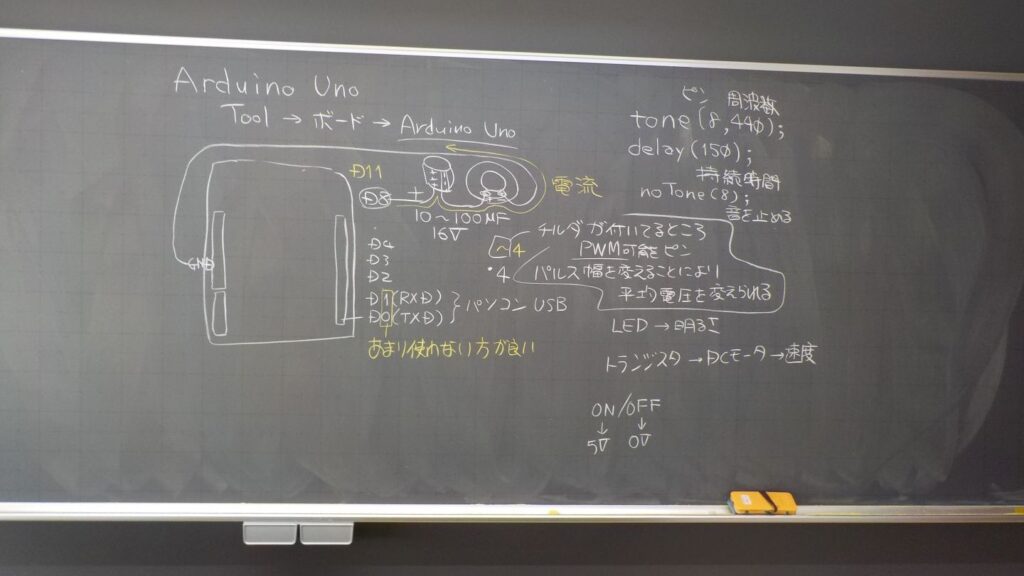 Arduino Uno
Tool → ボード → Arduino Uno
D11
D8
+
電流
10～100μF
16V
GND
D4
D3
D2
D1(RXD)
D0(TXD)
パソコン USB
あまり使わない方が良い
ピン 周波数
tone(8,440);
delay(150);
持続時間
noTone(8);
音を止める
~4
・4
チルダが付いてるところ
PWM可能ピン
パルス幅を変えることにより
平均電圧を変えられる
LED → 明るさ
トランジスタ → DCモータ → 速度
ON/OFF
↓ ↓
5V 0V